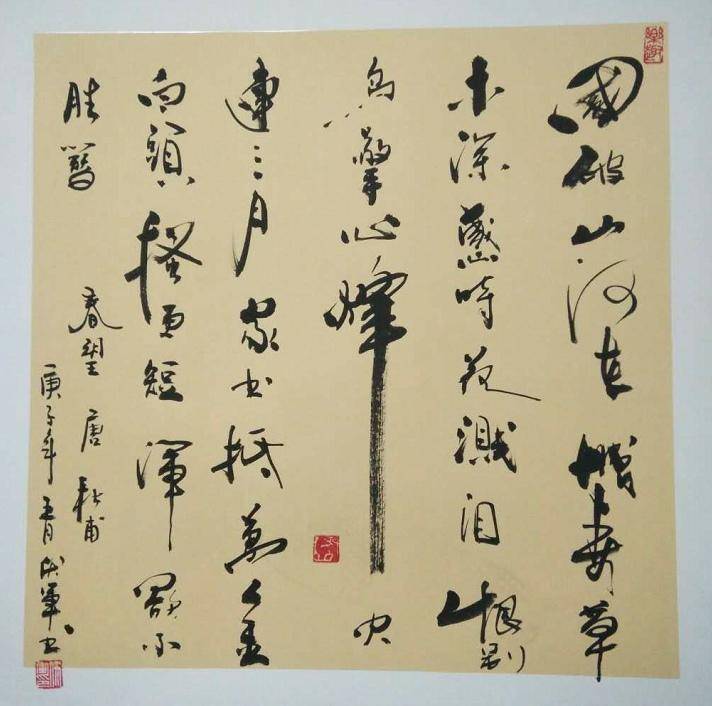 國破山河在城春草
木深感時花濺泪恨别
鳥驚心烽火
連三月家书抵萬金
白頭搔更短渾欲不
勝簪
春望 唐 杜甫
庚子年 月 軍书